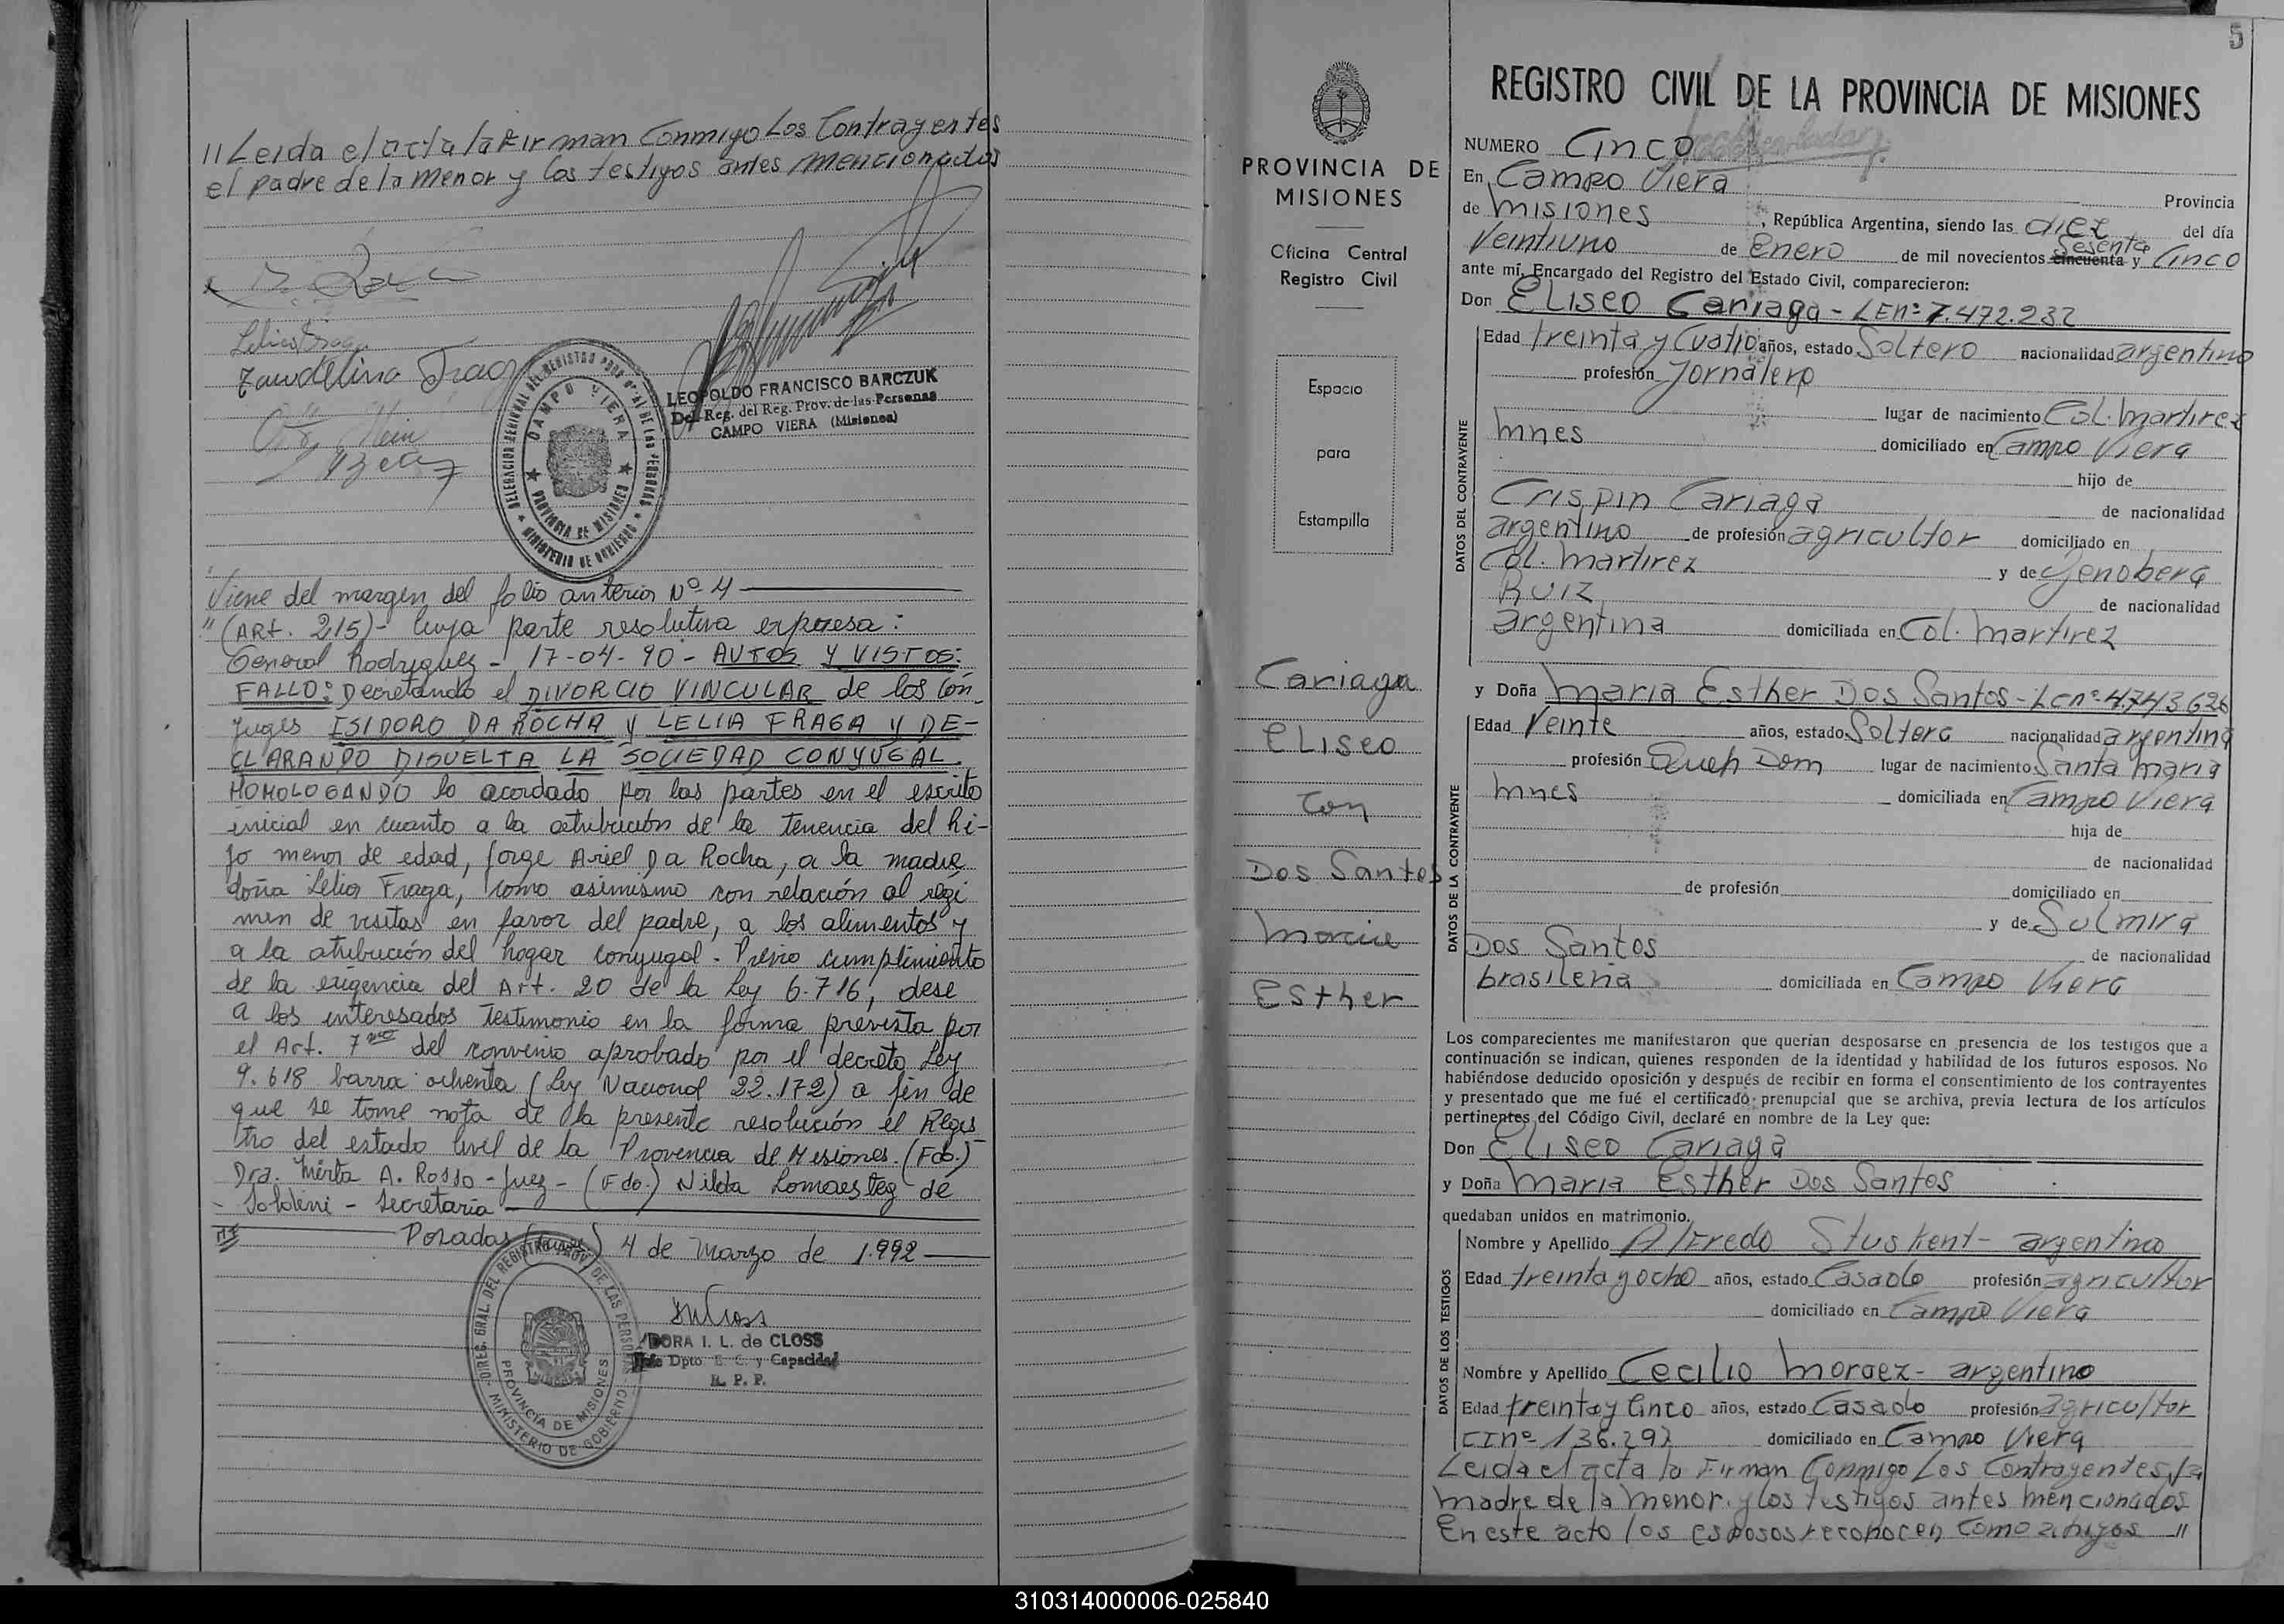 // Leida el acta la Firman Conmigo Los Contrayentes
el padre de la menor y los testigos antes mencionados
Lelia Fraga
Fraga
LEOPOLDO FRANCISCO BARCZUK
Del. Reg. del Reg. Prov. de las Personas
CAMPO VIERA (Misiones)
CAMPO VIERA
PROVINCIA DE MISIONES
MINISTERIO DE GOBIERNO
Viene del margen del folio anterior Nº 4
" (ART. 215)- cuya parte resolutiva expresa:
General Rodriguez - 17-04-90 - AUTOS Y VISTOS:
FALLO: Decretando el DIVORCIO VINCULAR de los Con-
yuges ISIDORO DA ROCHA y LELIA FRAGA Y DE-
CLARANDO DISUELTA LA SOCIEDAD CONYUGAL.
HOMOLOGANDO lo acordado por las partes en el escrito
inicial en cuanto a la atribución de la tenencia del hi-
jo menor de edad, Jorge Ariel Da Rocha, a la madre
doña Lelia Fraga, como asimismo con relación al regi
men de visitas en favor del padre, a los alimentos y
a la atribución del hogar conyugal. Previo cumplimiento
de la exigencia del Art. 20 de la Ley 6.716, dese
a los interesados Testimonio en la forma prevista por
el Art. 7mo del convenio aprobado por el decreto Ley
9.618 barra ochenta (Ley Nacional 22.172) a fin de
que se tome nota de la presente resolución el Regis
tro del estado Civil de la Provincia de Misiones. (Fdo.)
Dra. Mirta A. Rosso - Juez - (Fdo.) Nilda de
Soldini - Secretaria
Posadas 4 de Marzo de 1.992
DORA I. L. de CLOSS
Jefe Dpto. E. C. y Capacidad
R. P. P.
DIREC. GRAL. DEL REGISTRO PROV. DE LAS PERSONAS
PROVINCIA DE MISIONES
MINISTERIO DE GOBIERNO
PROVINCIA DE
MISIONES
Oficina Central
Registro Civil
Espacio
para
Estampilla
Cariaga
ELiseo
Con
Dos Santos
Maria
Esther
5
REGISTRO CIVIL DE LA PROVINCIA DE MISIONES
NUMERO Cinco
En Campo Viera Provincia
de misiones, República Argentina, siendo las diez del día
Veintiuno de Enero de mil novecientos cincuenta Sesenta y Cinco
ante mí, Encargado del Registro del Estado Civil, comparecieron:
Don ELiseo Cariaga - LEnº 7.472.232
Edad treinta y Cuatro años, estado Soltero nacionalidad argentino
profesión Jornalero
lugar de nacimiento Col. martirez
mnes domiciliado en Campo Viera
hijo de
Crispin Cariaga de nacionalidad
argentino de profesión agricultor domiciliado en
Col. martirez y de Genobera
RUIZ de nacionalidad
argentina domiciliada en Col. martirez
DATOS DEL CONTRAYENTE
y Doña maria Esther Dos Santos - Lcnº 4.743.626
Edad Veinte años, estado Soltera nacionalidad argentina
profesión Queh Dom lugar de nacimiento Santa maria
mnes domiciliada en Campo Viera
hija de
de nacionalidad
de profesión domiciliado en
y de Sulmira
Dos Santos de nacionalidad
brasileña domiciliada en Campo Viera
DATOS DE LA CONTRAYENTE
Los comparecientes me manifestaron que querían desposarse en presencia de los testigos que a
continuación se indican, quienes responden de la identidad y habilidad de los futuros esposos. No
habiéndose deducido oposición y después de recibir en forma el consentimiento de los contrayentes
y presentado que me fué el certificado prenupcial que se archiva, previa lectura de los artículos
pertinentes del Código Civil, declaré en nombre de la Ley que:
Don ELiseo Cariaga
y Doña maria Esther Dos Santos
quedaban unidos en matrimonio.
Nombre y Apellido Alfredo Stuskent - argentino
Edad treinta y ocho años, estado Casado profesión agricultor
domiciliado en Campo Viera
Nombre y Apellido Cecilio moraez - argentino
Edad treinta y Cinco años, estado Casado profesión agricultor
CInº 136.292 domiciliado en Campo Viera
DATOS DE LOS TESTIGOS
Leida el acta la Firman Conmigo Los Contrayentes, la
madre de la menor y los testigos antes mencionados
En este acto los esposos reconocen como a hijos //
310314000006-025840